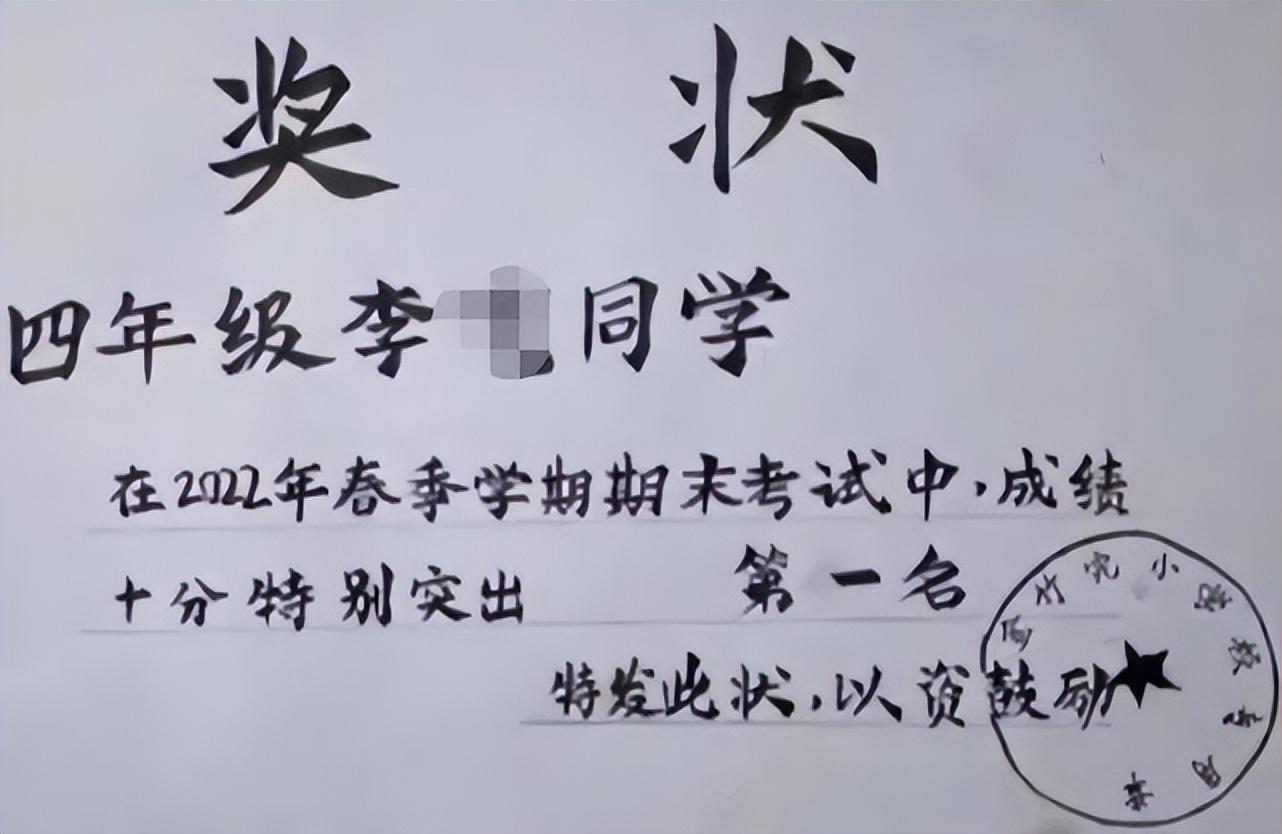 奖 状
四年级李 同学
在2022年春季学期期末考试中,成绩
十分特别突出 第一名
特发此状,以资鼓励